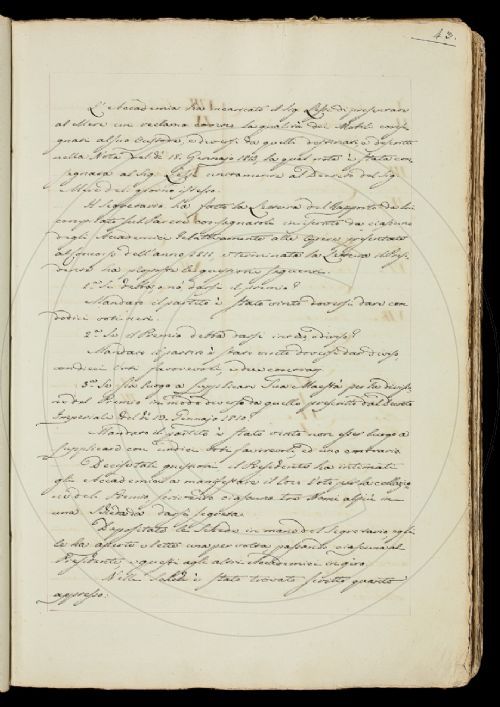 43.
L'Accademia ha incaricato il Sig. Lessi di preparare
al Mere un reclamo contro la qualità dei Mobili conse
gnati al suo Custode, e diversi da quelli destinati e descritti
nella Nota del dì 18. Gennajo 1812, la qual nota è stata con
segnata al Sig. Lessi unitamente al Decreto del Sig.
Mere del giorno istesso.
Il Segretario ha fatta la Lettura del Rapporto da lui
compilato sul Parere consegnatoli in iscritto da ciascuno
degli Accademici relativamente alle Opere presentate
al Concorso dell'anno 1811, e terminata la Lettura il Presi
dente ha proposte le questioni seguenti.
1.mo Se debba, o nò darsi il premio?
Mandato il partito è stato vinto doversi dare con
dodici voti neri.
2.do Se il Premio debba darsi intero, o diviso?
Mandato il partito è stato vinto doversi dar diviso,
con dieci voti favorevoli, e due contrarj.
3.zo Se sia luogo a supplicare Sua Maestà per la divisio
ne del Premio in modo diverso da quello prescritto dal Decreto
Imperiale del dì 19. Gennajo 1810.
Mandato il partito è stato vinto non esser luogo a
supplicare con undici voti favorevoli, ed uno contrario.
Decise tali questioni il Presidente ha intimati
gli Accademici a manifestare il loro voto per la collazio
ne del Premio, scrivendo ciascuno tre Nomi al più in
una Scheda darsi segreta.
Depositate le Schede in mano del Segretario egli
le ha aperte e lette una per volta passando ciascuna al
Presidente, e questi agli altri Accademici in giro.
Nelle Schede è stato trovato scritto quanto
appresso.